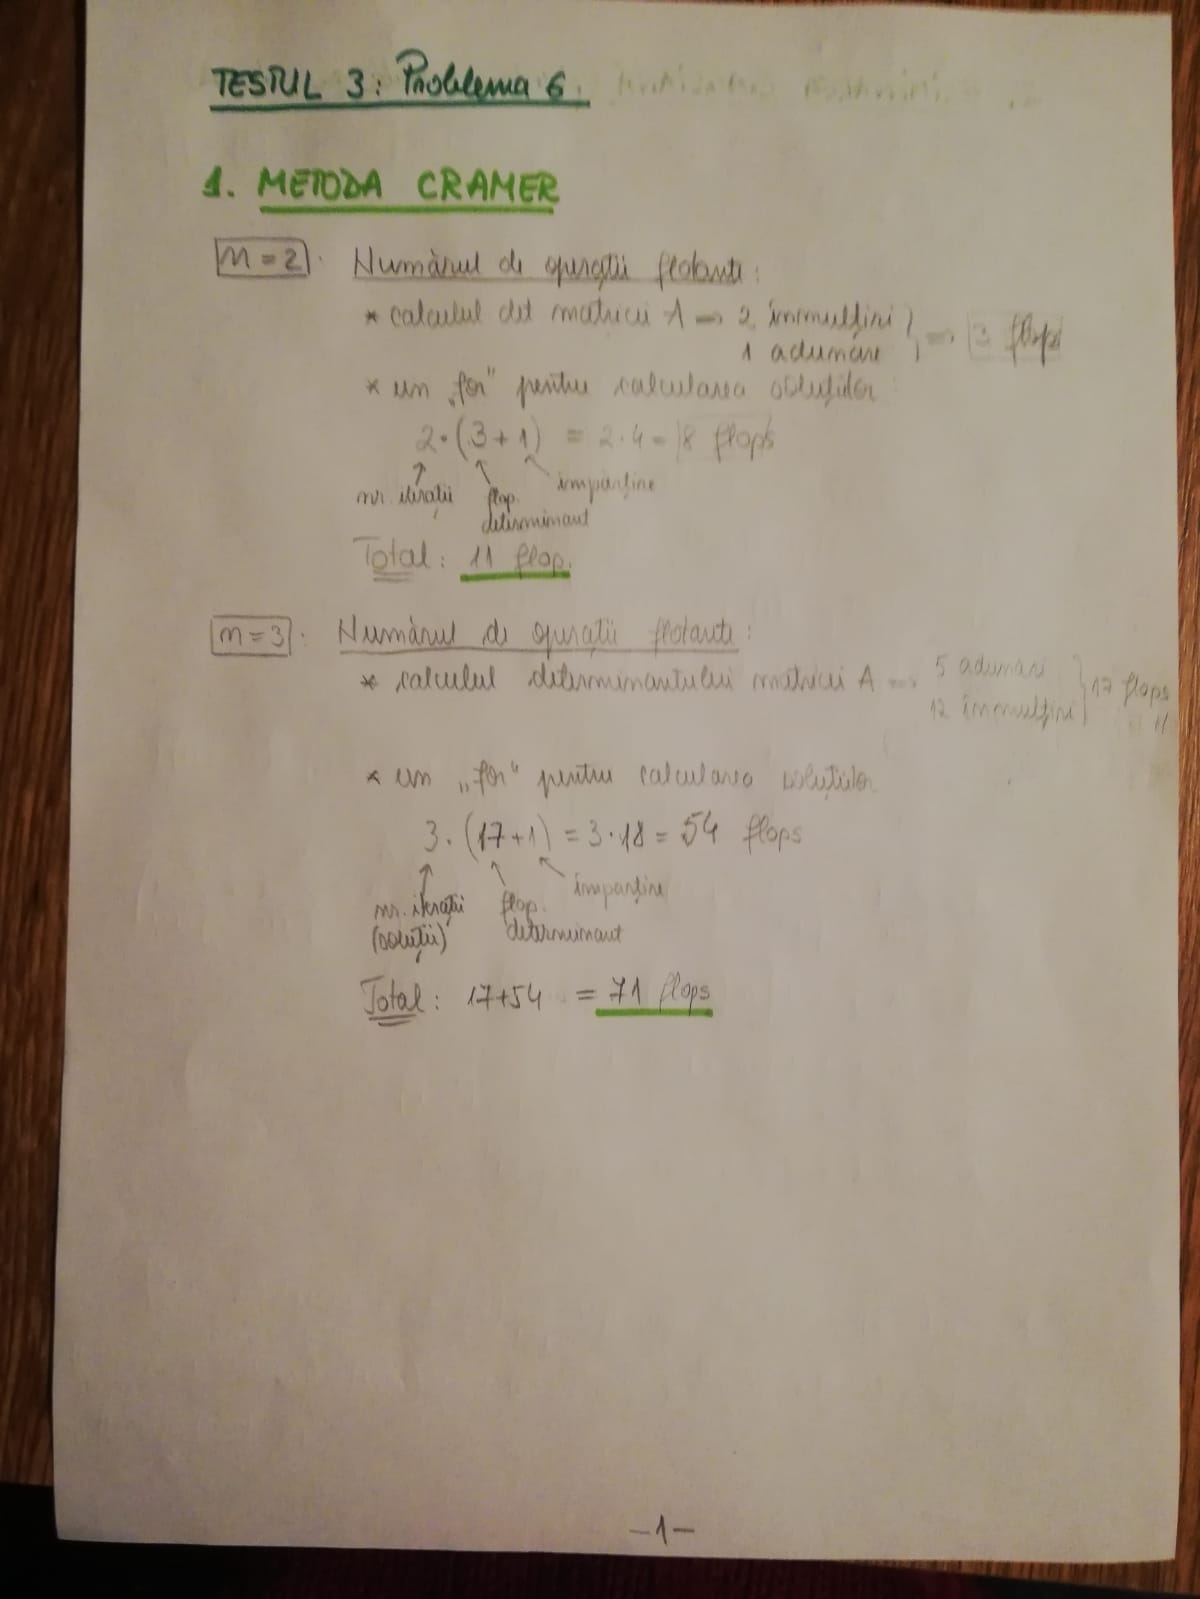 TESTUL 3: Problema 6.
1. METODA CRAMER
n=2. Numărul de operații flotante:
* calculul det matricii A => 2 înmulțiri
1 adunare } => 3 flops
* un „for" pentru calcularea soluțiilor:
2·(3+1) = 2·4 = 8 flops
nr. iterații flop. determinant împărțire
Total: 11 flop.
n=3. Numărul de operații flotante:
* calculul determinantului matricii A => 5 adunări
12 înmulțiri } 17 flops
* un „for" pentru calcularea soluțiilor
3·(17+1) = 3·18 = 54 flops
nr. iterații (soluții) flop. determinant împărțire
Total: 17+54 = 71 flops
-1-